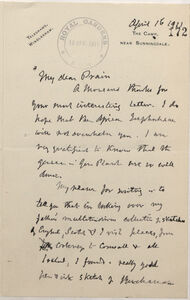 TELEGRAMS,
WINDLESHAM.
ROYAL GARDENS
April 16 1911
THE CAMP,
NEAR SUNNINGDALE.
My dear Prain
A thousand thanks for
your most interesting letter. I do
hope that the African
will not overwhelm you. I am
very gratified to know that the
in Gen Plant are so well
done.
My reason for writing is to
tell you that in looking over my
father's multitudinous collection of sketches
of English, Scotch & Irish places, from
to Cornwall & all
I found a really good
pen & ink sketch of Buchanan